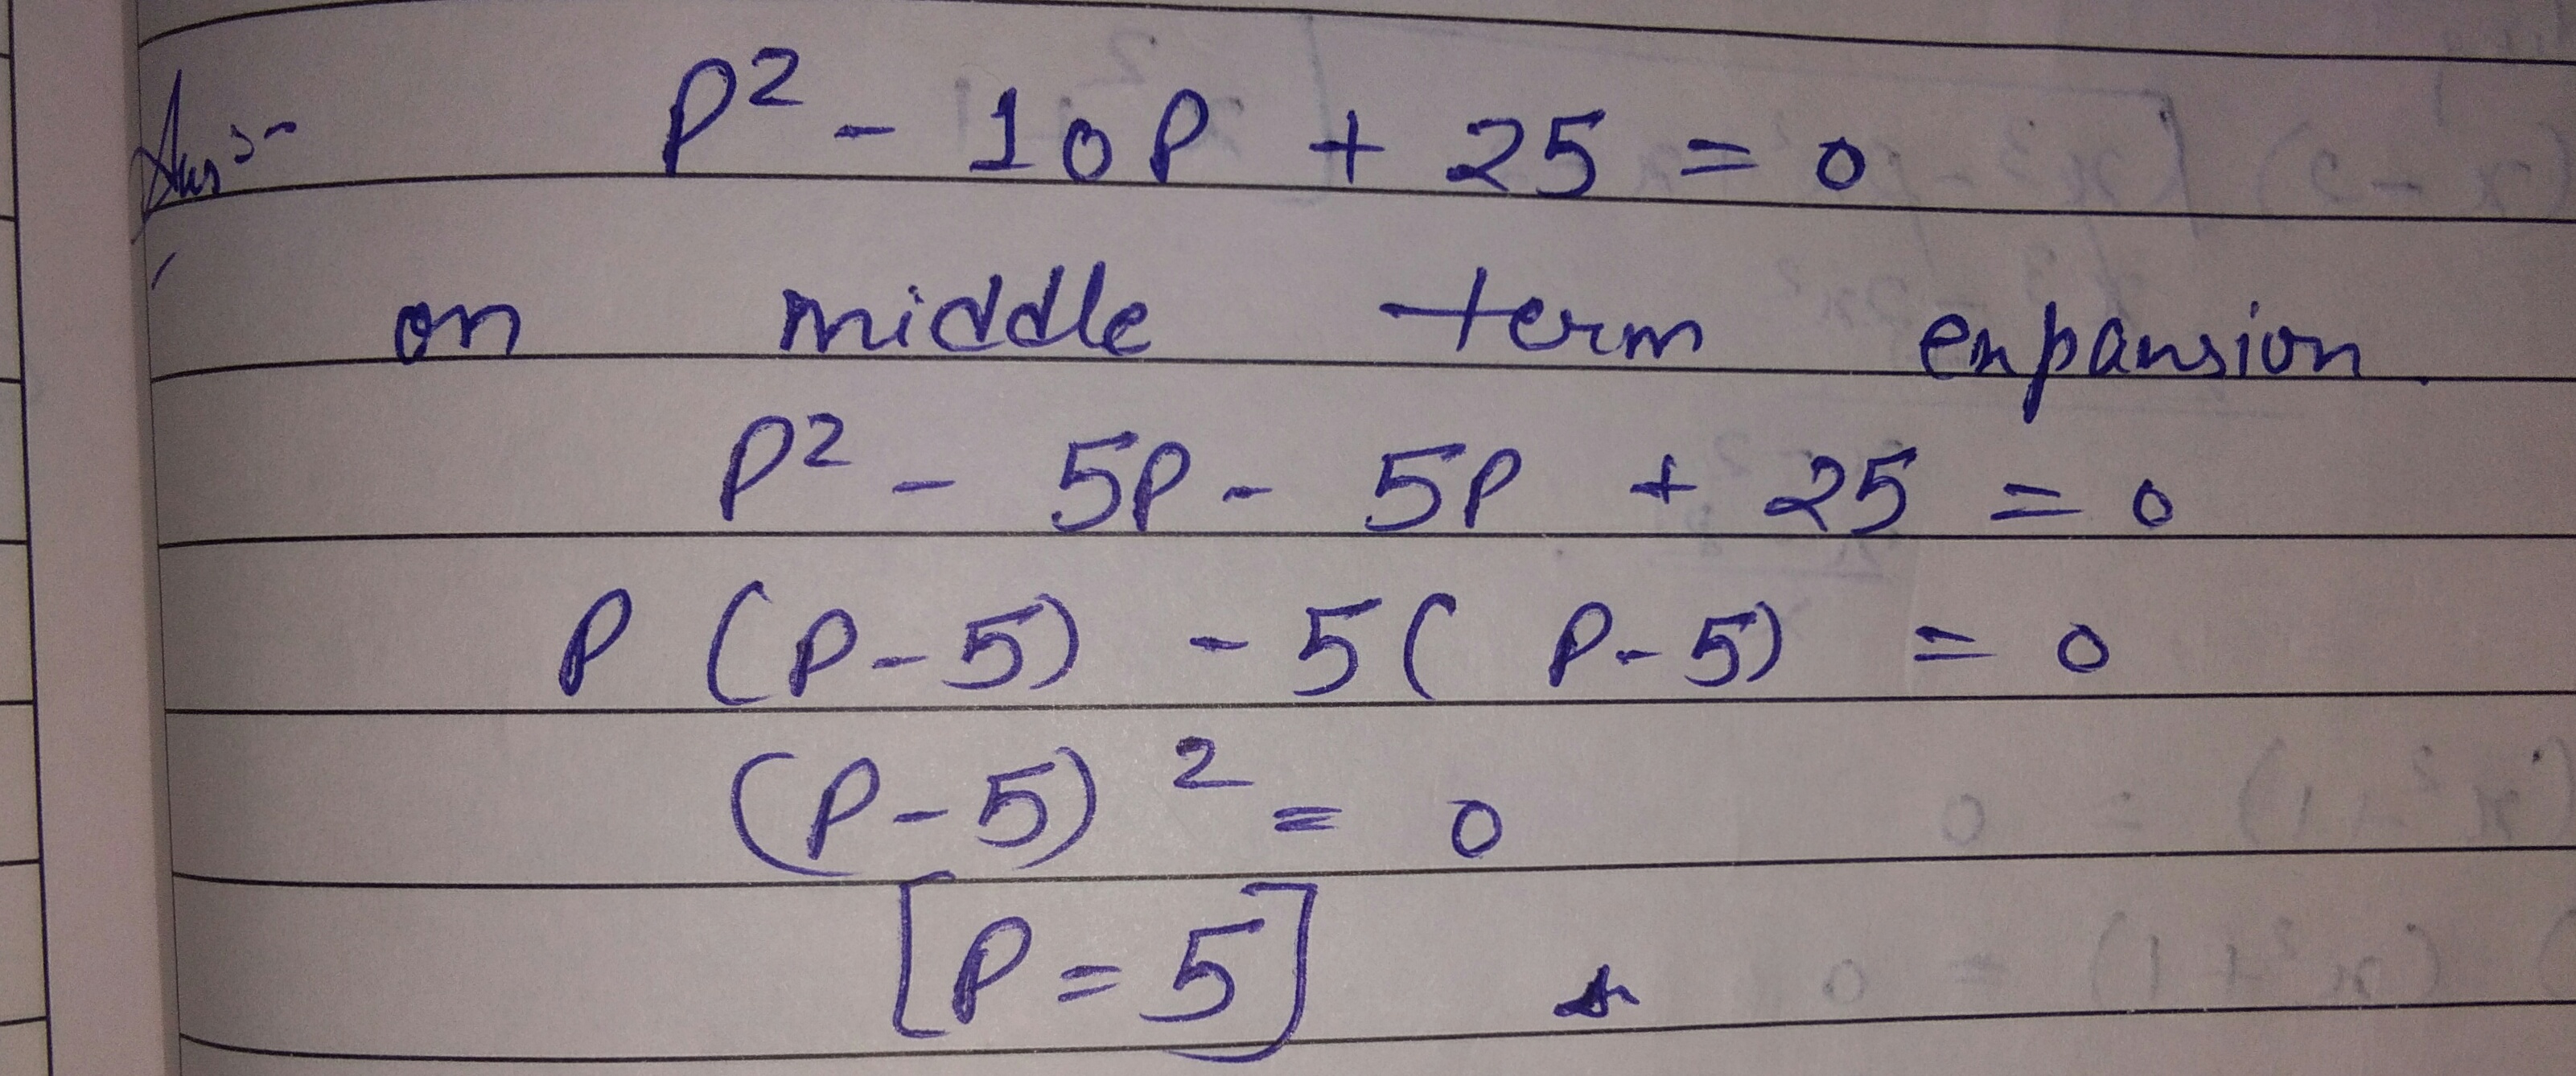 Ans:- P² - 10P + 25 = 0
on middle term expansion.
P² - 5P - 5P + 25 = 0
P (P-5) - 5( P-5) = 0
(P-5)² = 0
[P = 5]